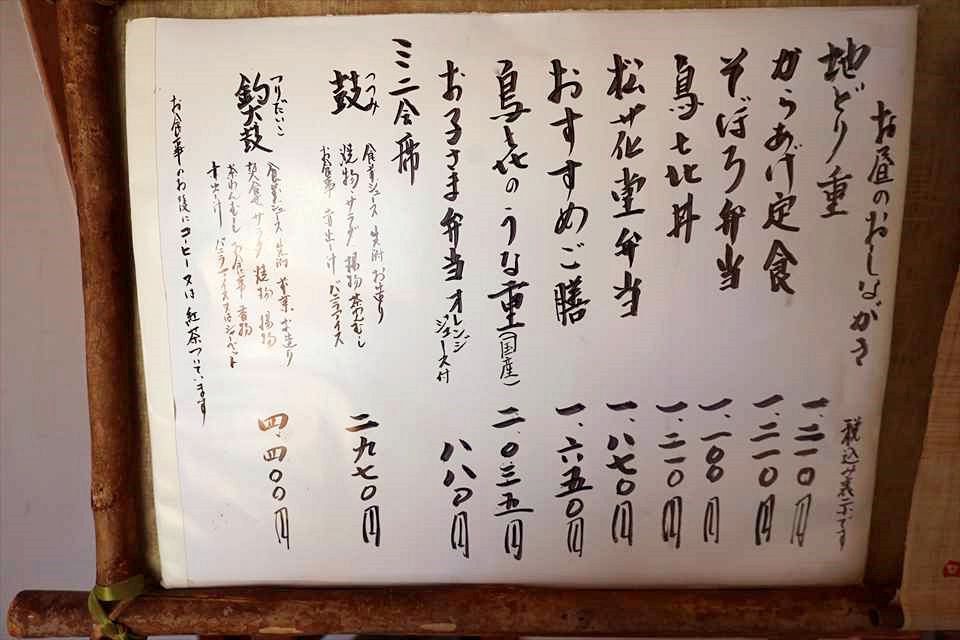 お昼のおしながき
税込み表示です
地どり重 一、二一〇円
からあげ定食 一、二一〇円
そぼろ弁当 一、一〇〇円
鳥七丼 一、二一〇円
松花堂弁当 一、八七〇円
おすすめご膳 一、六五〇円
鳥七のうな重(国産) 二、〇三五円
お子さま弁当 オレンジジュース付 八八〇円
ミニ会席
鼓 つつみ 二九七〇円
食前ジュース 先附 お造り
焼物・サラダ 揚物 茶わんむし
お食事 吸出し汁 バニラアイス
釣太鼓 つりだいこ 四、四〇〇円
食前ジュース 先附 前菜 お造り
サラダ 焼物 揚物
茶わんむし お食事 香物
バニラアイス又はシャーベット
お食事のお後にコーヒー又は紅茶ついています